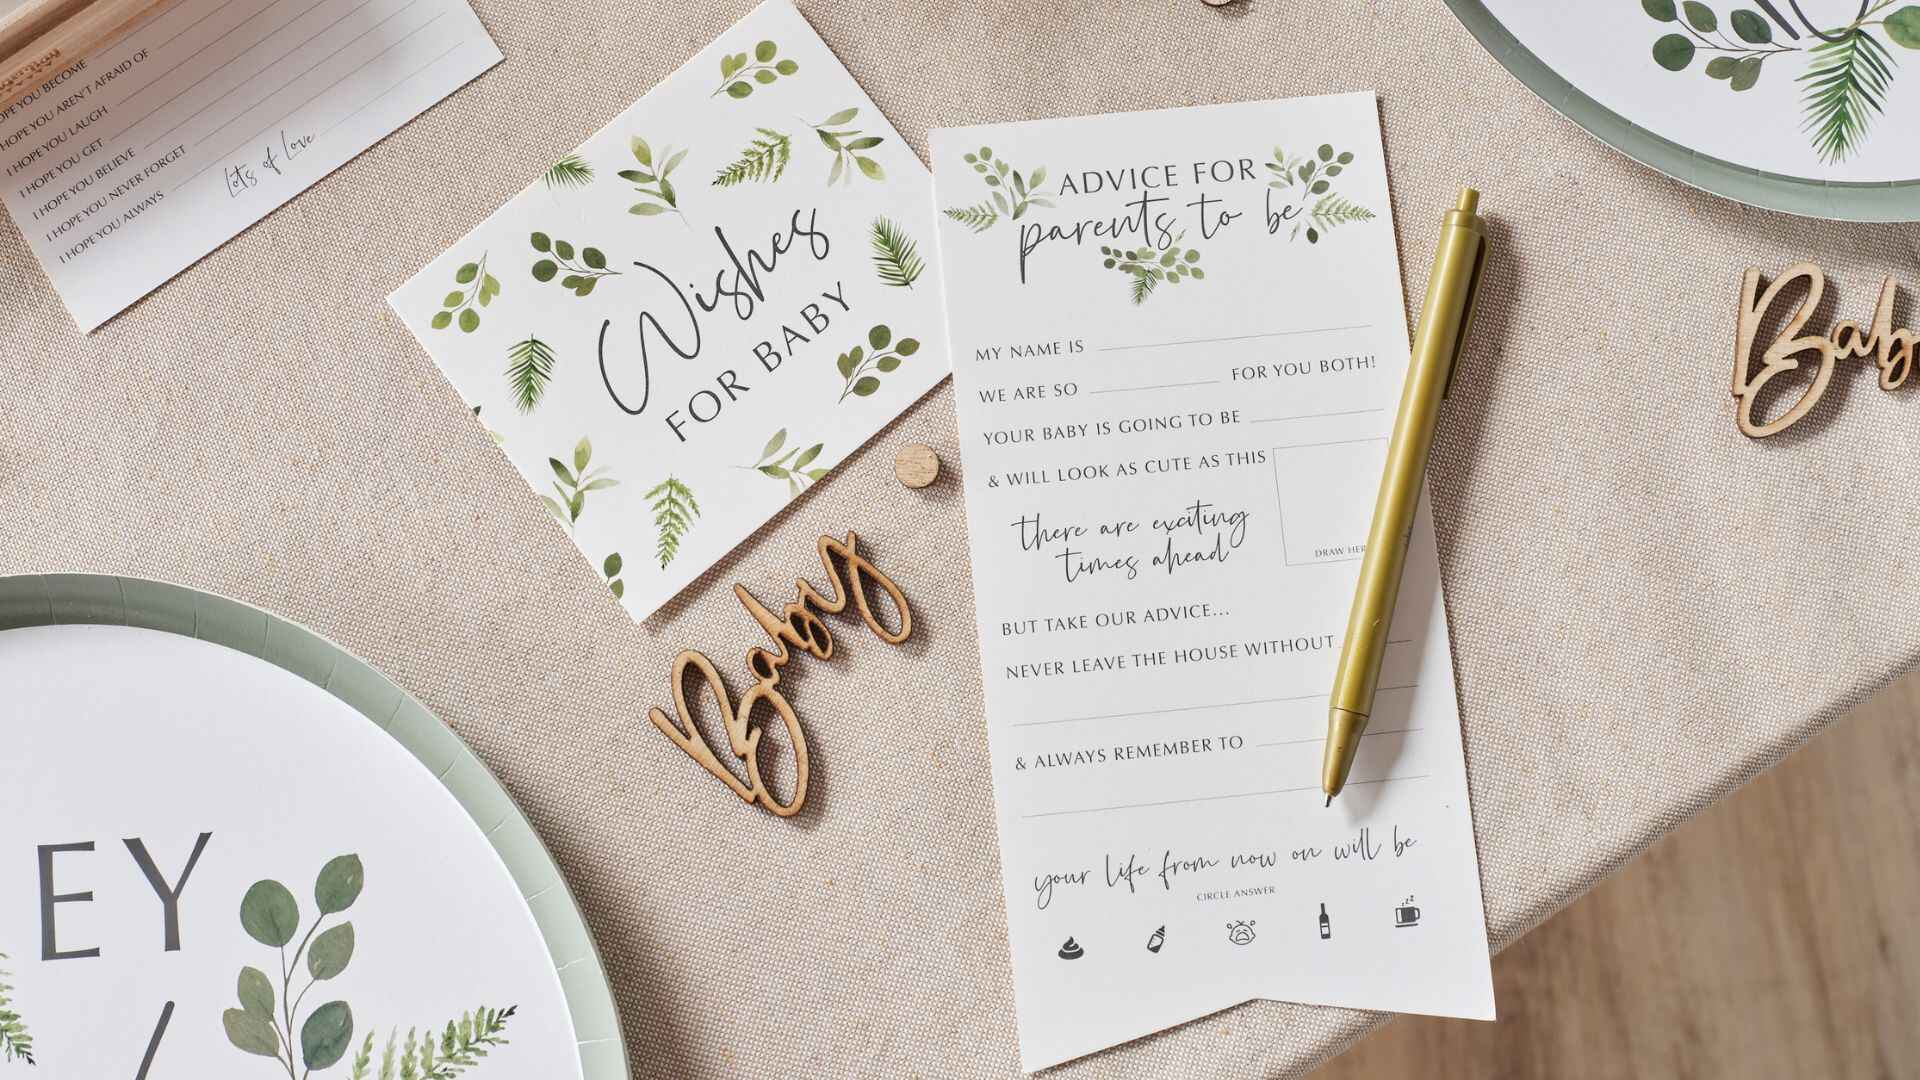 HOPE YOU BECOME
I HOPE YOU AREN'T AFRAID OF
I HOPE YOU LAUGH
I HOPE YOU GET
I HOPE YOU BELIEVE
I HOPE YOU NEVER FORGET
I HOPE YOU ALWAYS
Lots of Love
Wishes
FOR BABY
ADVICE FOR
parents to be
MY NAME IS
WE ARE SO FOR YOU BOTH!
YOUR BABY IS GOING TO BE
& WILL LOOK AS CUTE AS THIS
DRAW HER
there are exciting
times ahead
BUT TAKE OUR ADVICE...
NEVER LEAVE THE HOUSE WITHOUT
& ALWAYS REMEMBER TO
your life from now on will be
CIRCLE ANSWER
Baby
Bab
EY